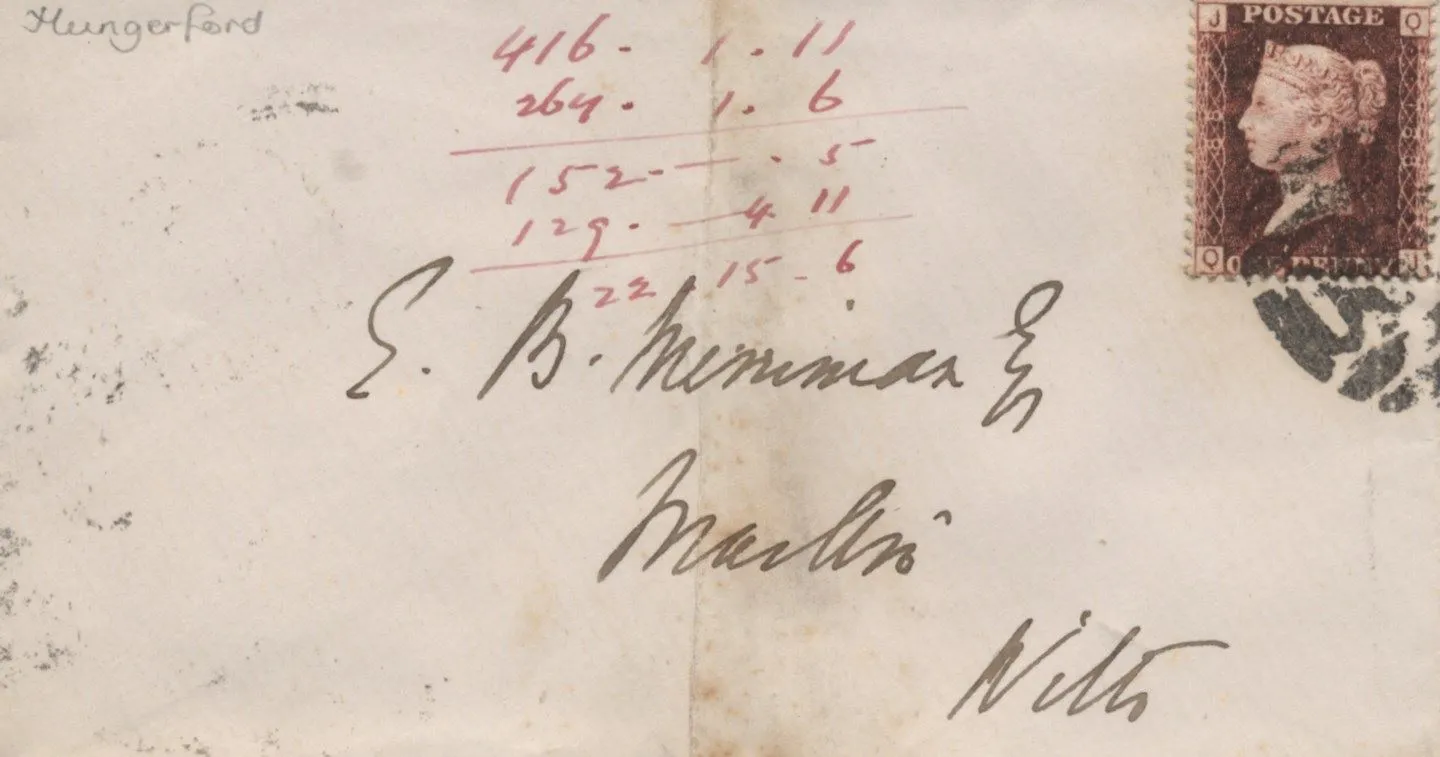 Hungerford
416 - 1 . 11
264 . 1 . 6
152 - — . 5
129 . — 4 11
22 15 - 6
J POSTAGE Q
Q ONE PENNY J
E. B. Merriman Esq
Marlbro'
Wilts